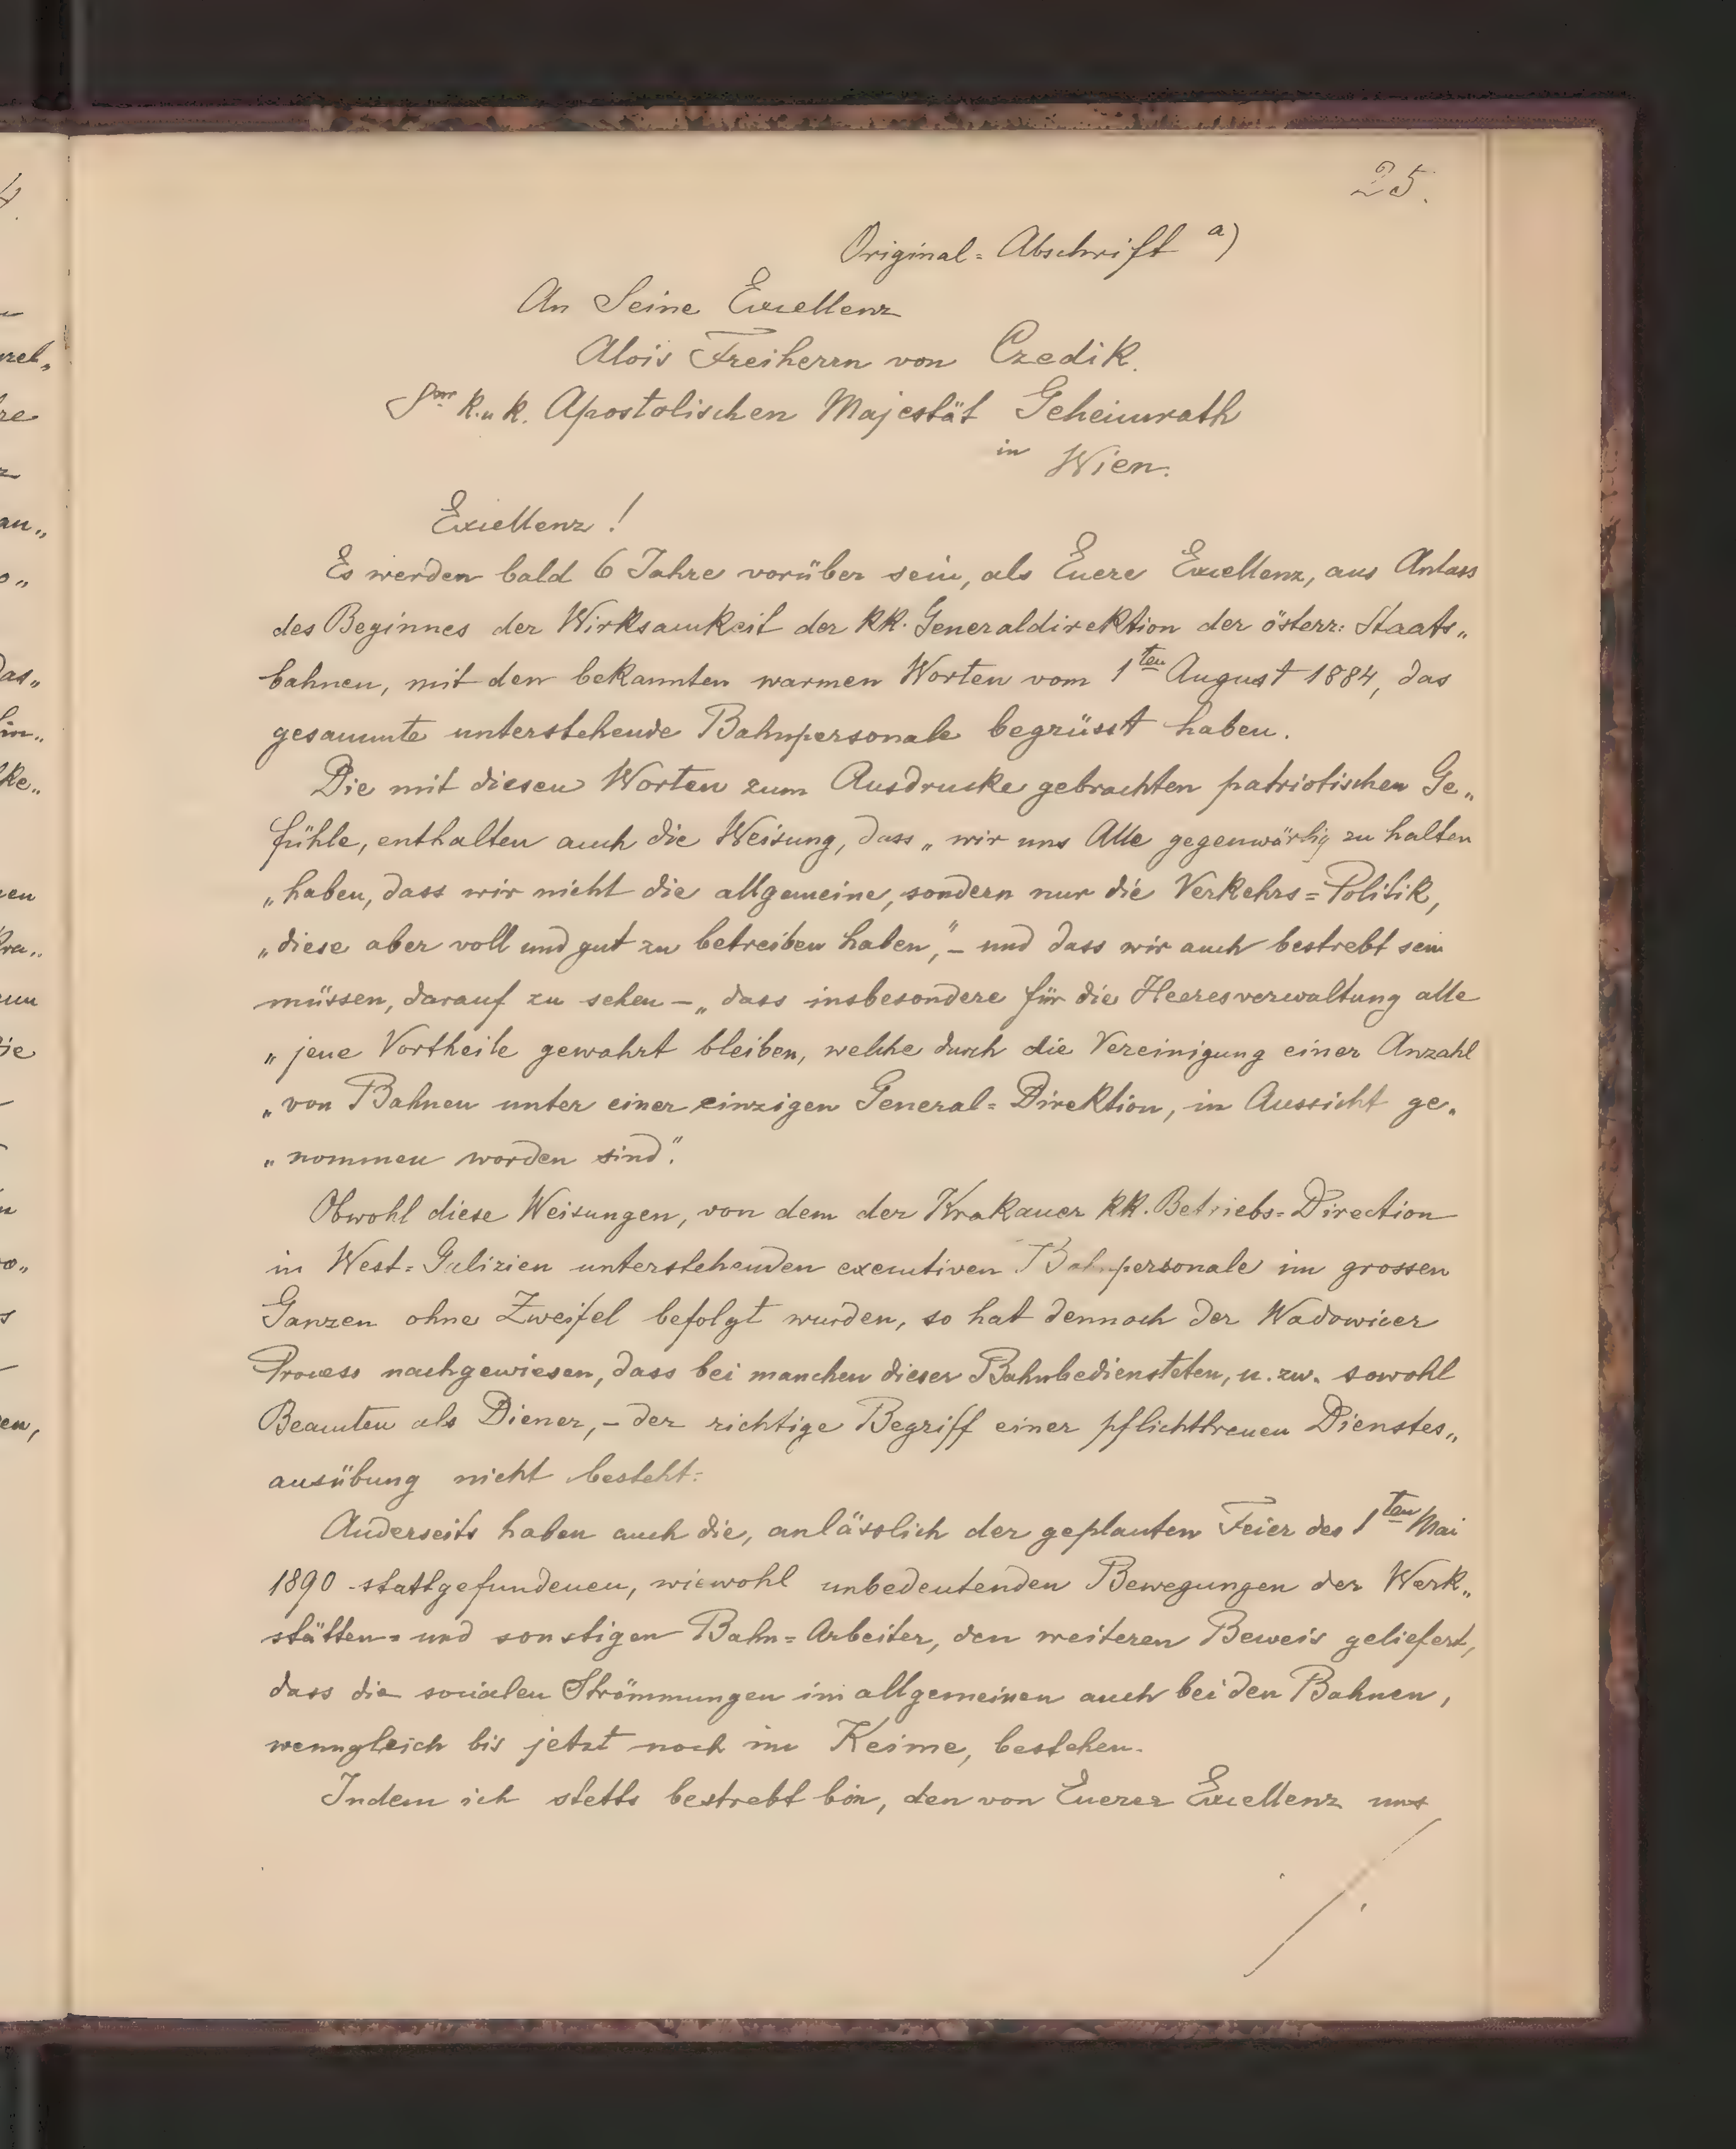 25.
Original = Abschrift a)
An Seine Excellenz
Alois Freiherrn von Czedik.
Sr k. u k. Apostolischen Majestät Geheimrath
in Wien.
Excellenz!
Es werden bald 6 Jahre vorüber sein, als Euere Excellenz, aus Anlass
des Beginnes der Wirksamkeit der KK. Generaldirektion der österr: Staats„
bahnen, mit den bekannten warmen Worten vom 1ten August 1884, das
gesammte unterstehende Bahnpersonale begrüsst haben.
Die mit diesen Worten zum Ausdrucke gebrachten patriotischen Ge„
fühle, enthalten auch die Weisung, dass „wir uns Alle gegenwärtig zu halten
„haben, dass wir nicht die allgemeine, sondern nur die Verkehrs=Politik,
„diese aber voll und gut zu betreiben haben," – und dass wir auch bestrebt sein
müssen, darauf zu sehen – „dass insbesondere für die Heeresverwaltung alle
„jene Vortheile gewahrt bleiben, welche durch die Vereinigung einer Anzahl
„von Bahnen unter einer einzigen General=Direktion, in Aussicht ge„
„nommen worden sind".
Obwohl diese Weisungen, von dem der Krakauer KK. Betriebs=Direction
in West=Galizien unterstehenden executiven Bahnpersonale im grossen
Ganzen ohne Zweifel befolgt wurden, so hat dennoch der Wadowicer
Process nachgewiesen, dass bei manchen dieser Bahnbediensteten, u. zw. sowohl
Beamten als Diener, – der richtige Begriff einer pflichttreuen Dienstes„
ausübung nicht besteht.
Anderseits haben auch die, anlässlich der geplanten Feier des 1ten Mai
1890 stattgefundenen, wiewohl unbedeutenden Bewegungen der Werk„
stätten= und sonstigen Bahn=Arbeiter, den weiteren Beweis geliefert,
dass die socialen Strömmungen im allgemeinen auch bei den Bahnen,
wenngleich bis jetzt noch im Keime, bestehen.
Indem ich stetts bestrebt bin, den von Euerer Excellenz uns